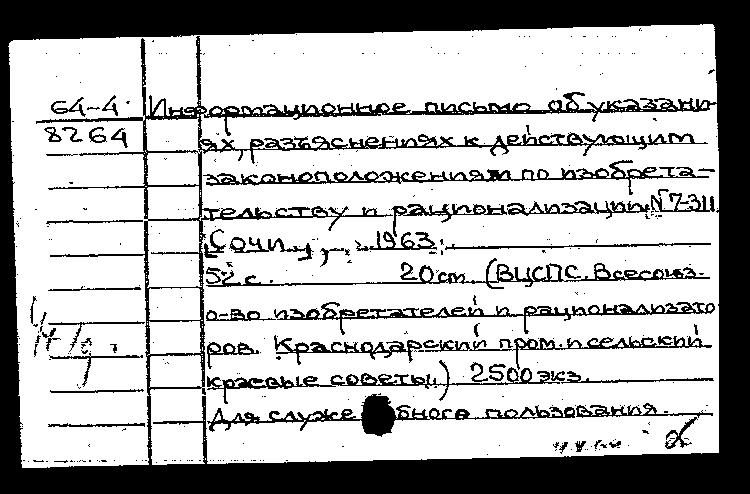 64-4 Информационное письмо об указани-
8264 ях, разъяснениях к действующим
законоположениям по изобрета-
тельству и рационализации №7-311
Сочи, 1963.
52 с. 20 см. (ВЦСПС. Всесоюз.
о-во изобретателей и рационализато
ров. Краснодарский пром. и сельский
краевые советы) 2500 экз.
Для служебного пользования.